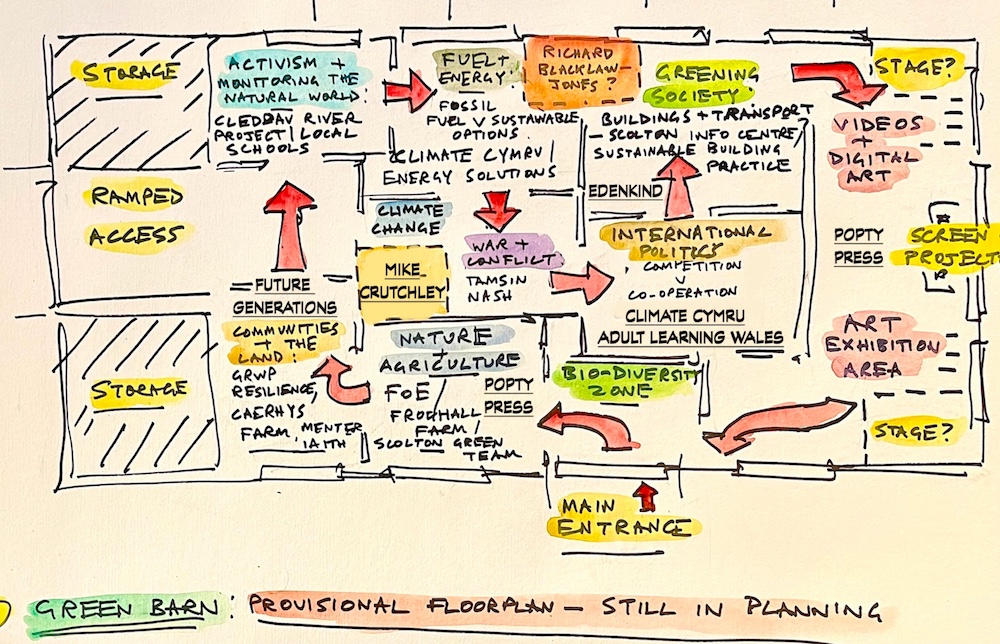 STORAGE
ACTIVISM +
MONITORING THE
NATURAL WORLD:
CLEDDAV RIVER
PROJECT | LOCAL
SCHOOLS
FUEL +
ENERGY:
FOSSIL
FUEL V SUSTAINABLE
OPTIONS.
CLIMATE CYMRU /
ENERGY SOLUTIONS
RICHARD
BLACKLAW-
JONES ?
GREENING
SOCIETY:
BUILDINGS + TRANSPORT
- SCOLTON INFO CENTRE/
SUSTAINABLE BUILDING
PRACTICE
STAGE?
VIDEOS
+
DIGITAL
ART
RAMPED
ACCESS
CLIMATE
CHANGE
MIKE
CRUTCHLEY
WAR +
CONFLICT
TAMSIN
NASH
EDENKIND
INTERNATIONAL
POLITICS
COMPETITION
V
CO-OPERATION
CLIMATE CYMRU
ADULT LEARNING WALES
POPTY
PRESS
SCREEN
PROJECT
FUTURE
GENERATIONS
COMMUNITIES
+ THE
LAND:
GRWP
RESILIENCE,
CAERHYS
FARM, MENTER
IAITH
STORAGE
NATURE
+
AGRICULTURE
FOE /
FROGHALL
FARM /
SCOLTON GREEN
TEAM
POPTY
PRESS
BIO-DIVERSITY
ZONE
ART
EXHIBITION
AREA
STAGE?
MAIN
ENTRANCE
GREEN BARN: PROVISIONAL FLOORPLAN - STILL IN PLANNING